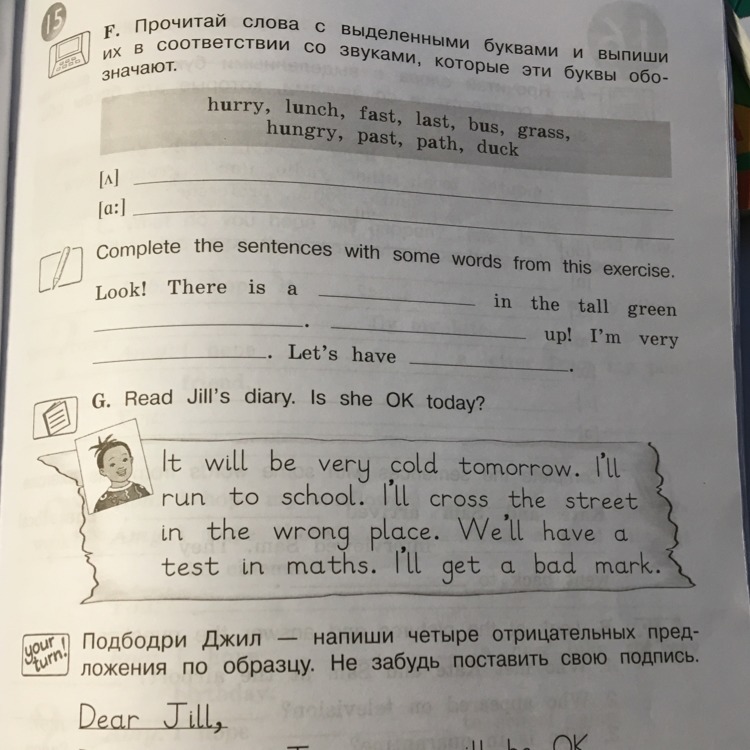 15
F. Прочитай слова с выделенными буквами и выпиши
их в соответствии со звуками, которые эти буквы обо-
значают.
hurry, lunch, fast, last, bus, grass,
hungry, past, path, duck
[ʌ]
[ɑ:]
Complete the sentences with some words from this exercise.
Look! There is a ____ in the tall green
____. ____ up! I'm very
____. Let's have ____.
G. Read Jill's diary. Is she OK today?
It will be very cold tomorrow. I'll
run to school. I'll cross the street
in the wrong place. We'll have a
test in maths. I'll get a bad mark.
your
turn!
Подбодри Джил — напиши четыре отрицательных пред-
ложения по образцу. Не забудь поставить свою подпись.
Dear Jill,
be OK